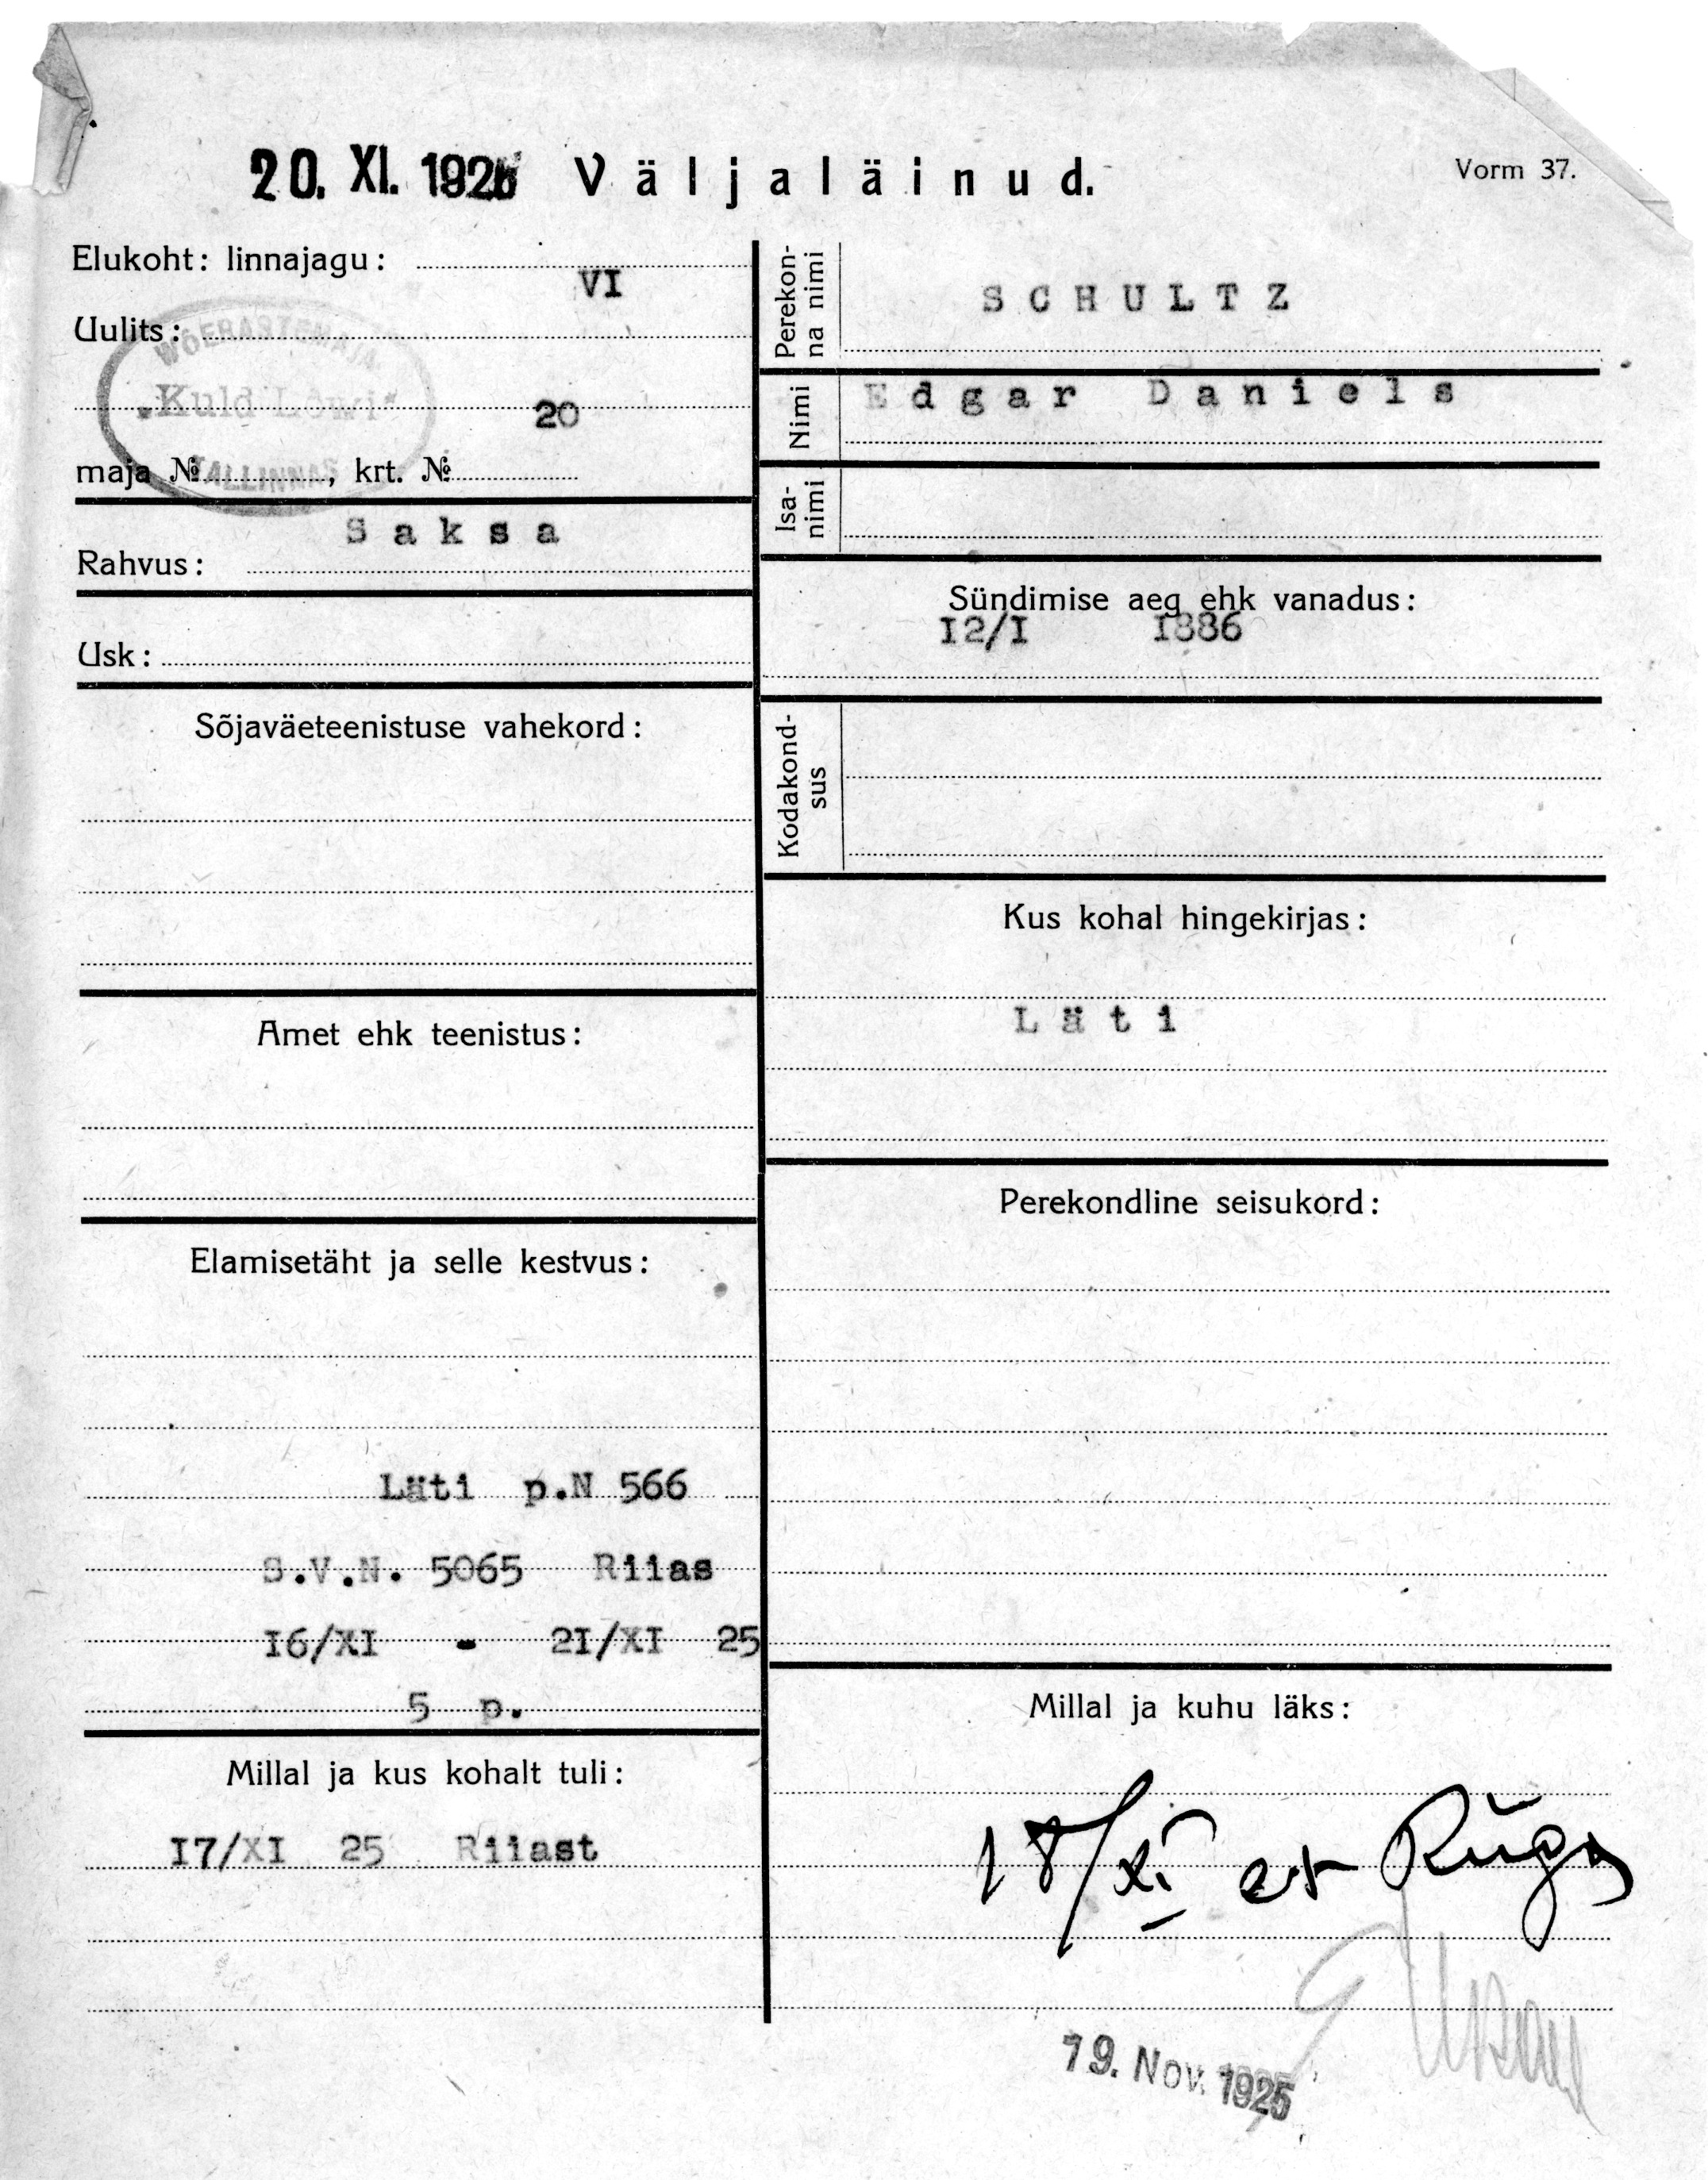 20. XI. 1925 Väljaläinud.
Vorm 37.
Elukoht: linnajagu:
VI
Uulits:
WÕERASTEMAJA
„Kuld Lõwi“
TALLINNAS
20
maja №, krt. №
Saksa
Rahvus:
Usk:
Sõjaväeteenistuse vahekord:
Amet ehk teenistus:
Elamisetäht ja selle kestvus:
Läti p.N 566
S.V.N. 5065 Riias
I6/XI - 2I/XI 25
5 p.
Millal ja kus kohalt tuli:
I7/XI 25 Riiast
Perekon-
na nimi
SCHULTZ
Nimi
Edgar Daniels
Isa-
nimi
Sündimise aeg ehk vanadus:
I2/I I886
Kodakond-
sus
Kus kohal hingekirjas:
Läti
Perekondline seisukord:
Millal ja kuhu läks:
18/XI
19. Nov. 1925